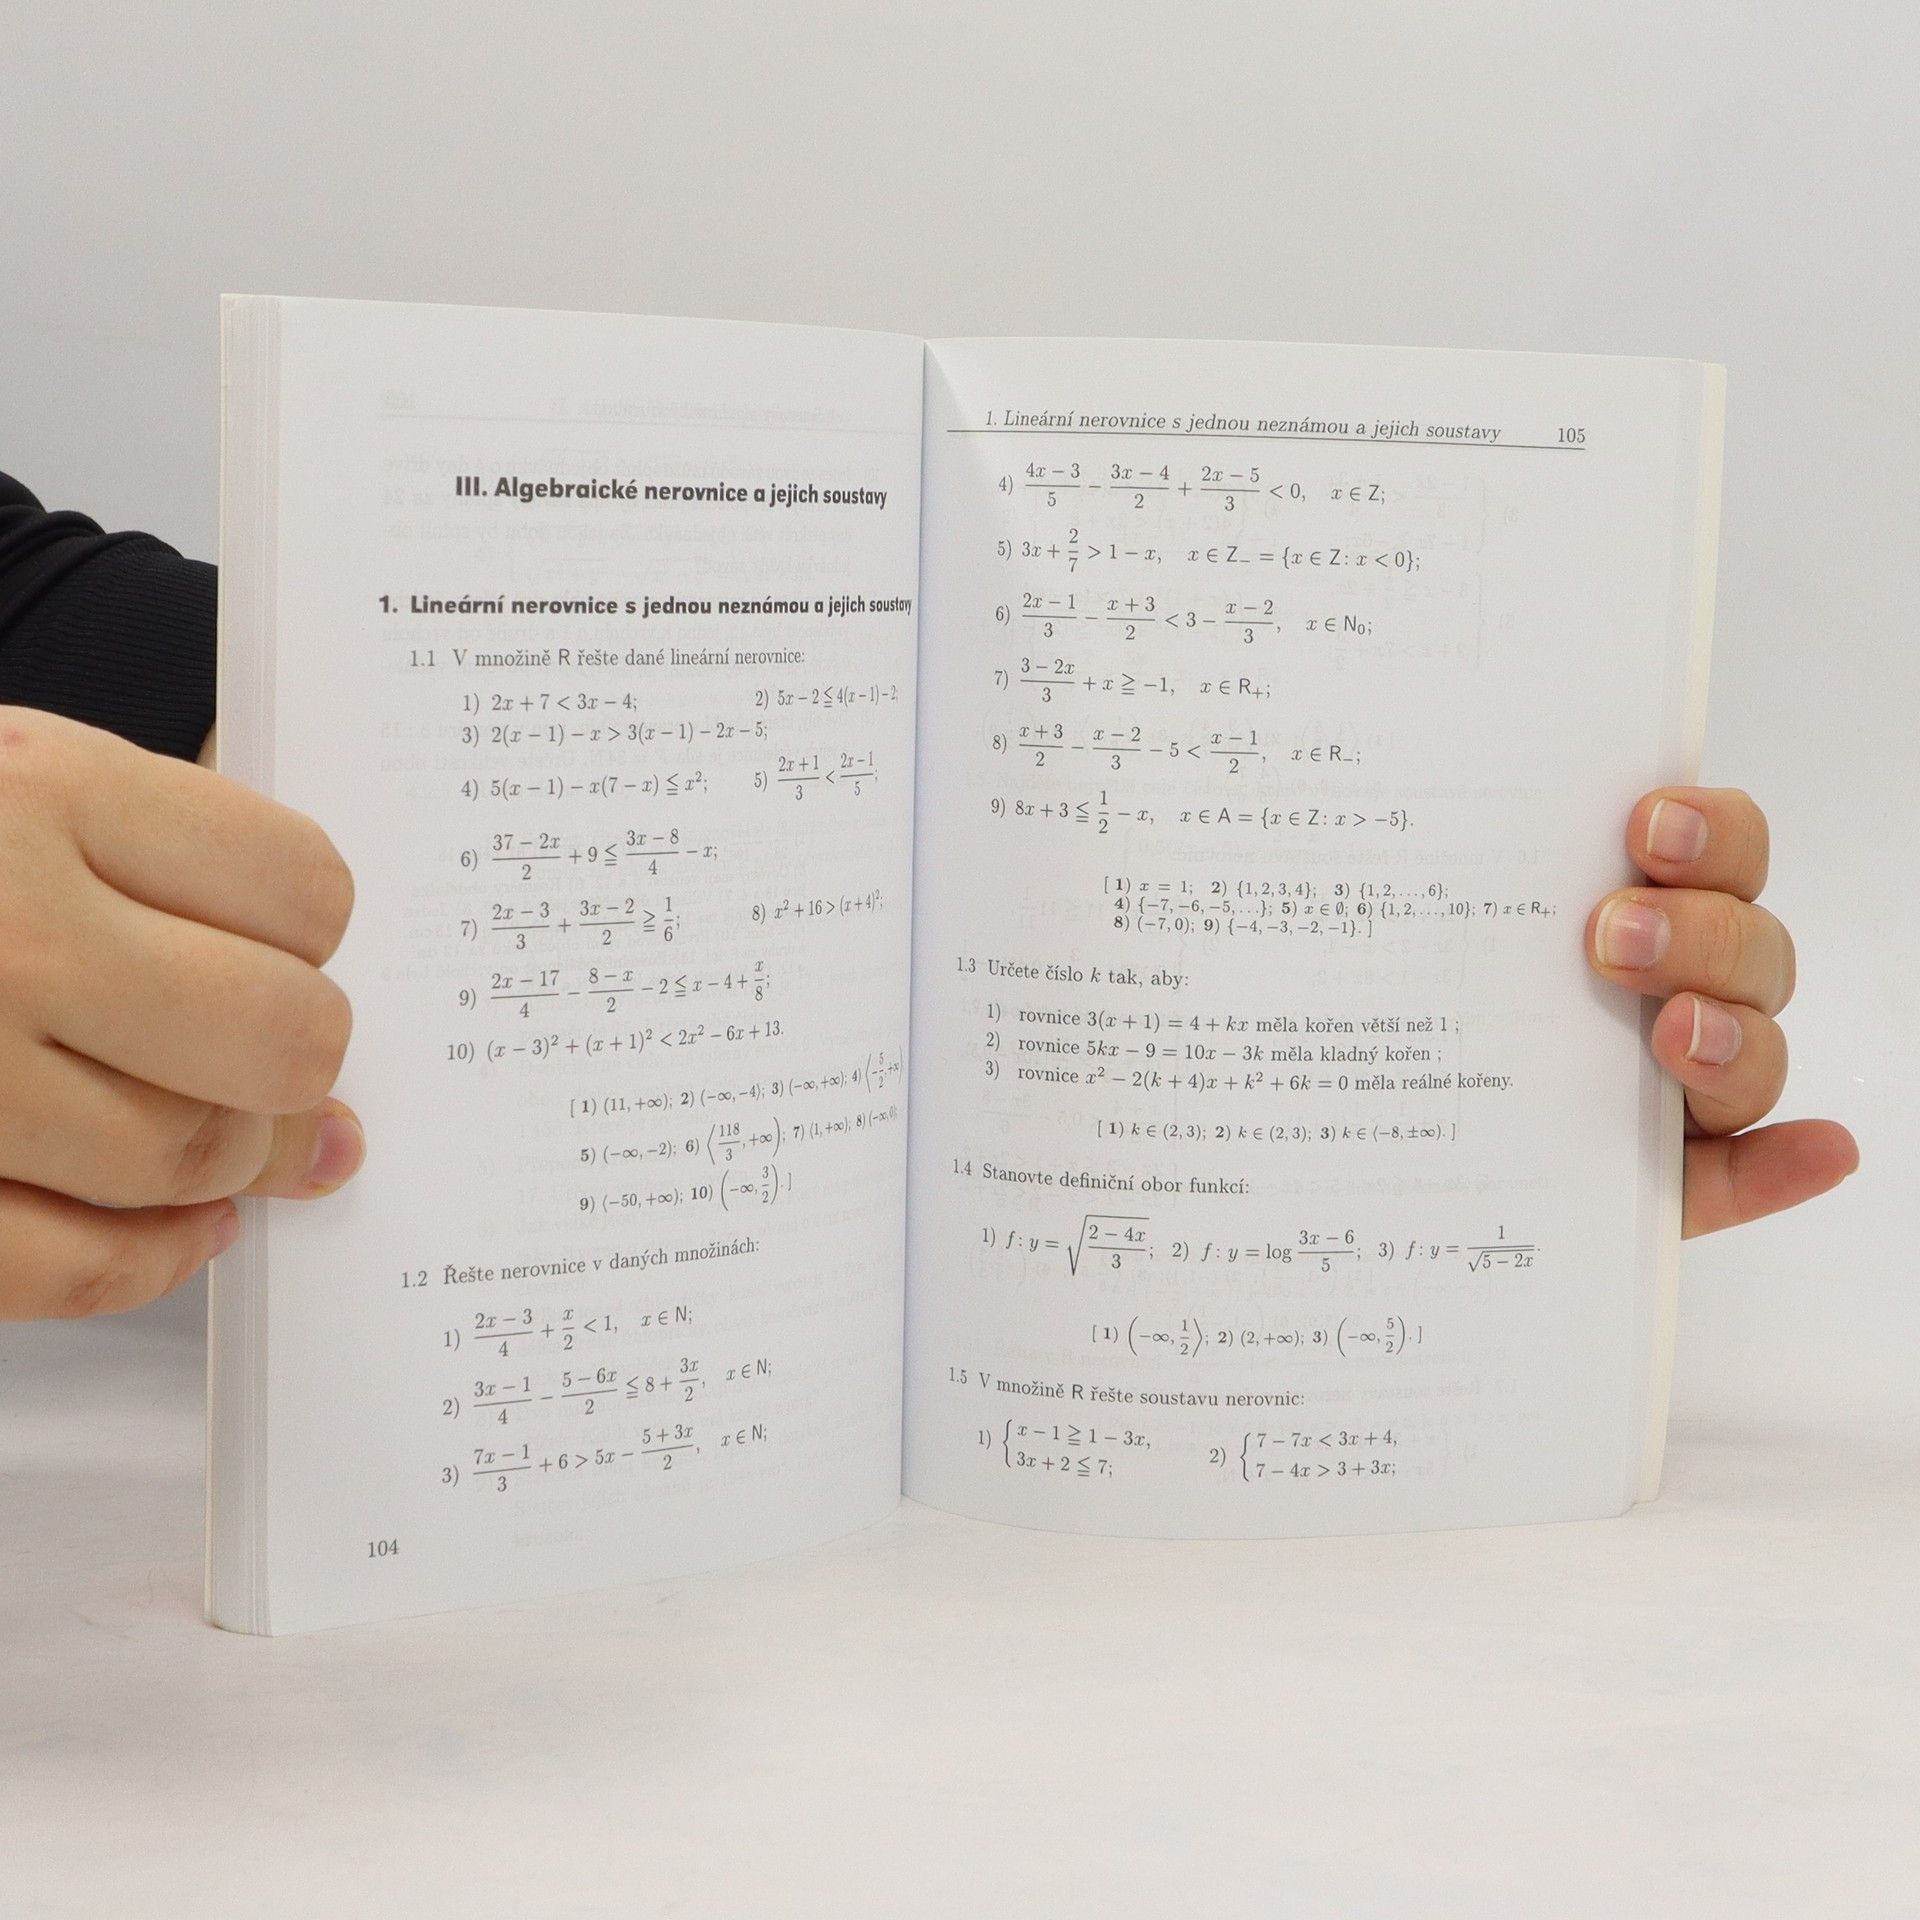 III. Algebraické nerovnice a jejich soustavy
1. Lineární nerovnice s jednou neznámou a jejich soustavy
1.1 V množině R řešte dané lineární nerovnice:
1) 2x + 7 < 3x − 4; 2) 5x − 2 ≦ 4(x − 1) − 2;
3) 2(x − 1) − x > 3(x − 1) − 2x − 5;
4) 5(x − 1) − x(7 − x) ≦ x²; 5) (2x + 1)/3 < (2x − 1)/5;
6) (37 − 2x)/2 + 9 ≦ (3x − 8)/4 − x;
7) (2x − 3)/3 + (3x − 2)/2 ≧ 1/6; 8) x² + 16 > (x + 4)²;
9) (2x − 17)/4 − (8 − x)/2 − 2 ≦ x − 4 + x/8;
10) (x − 3)² + (x + 1)² < 2x² − 6x + 13.
[ 1) (11, +∞); 2) (−∞, −4); 3) (−∞, +∞); 4) ⟨−5/2, +∞);
5) (−∞, −2); 6) ⟨118/3, +∞); 7) ⟨1, +∞); 8) (−∞, 0);
9) ⟨−50, +∞); 10) (−∞, 3/2). ]
1.2 Řešte nerovnice v daných množinách:
1) (2x − 3)/4 + x/2 < 1, x ∈ N;
2) (3x − 1)/4 − (5 − 6x)/2 ≦ 8 + 3x/2, x ∈ N;
3) (7x − 1)/3 + 6 > 5x − (5 + 3x)/2, x ∈ N;
104
1. Lineární nerovnice s jednou neznámou a jejich soustavy 105
4) (4x − 3)/5 − (3x − 4)/2 + (2x − 5)/3 < 0, x ∈ Z;
5) 3x + 2/7 > 1 − x, x ∈ Z₋ = {x ∈ Z: x < 0};
6) (2x − 1)/3 − (x + 3)/2 < 3 − (x − 2)/3, x ∈ N₀;
7) (3 − 2x)/3 + x ≧ −1, x ∈ R₊;
8) (x + 3)/2 − (x − 2)/3 − 5 < (x − 1)/2, x ∈ R₋;
9) 8x + 3 ≦ 1/2 − x, x ∈ A = {x ∈ Z: x > −5}.
[ 1) x = 1; 2) {1, 2, 3, 4}; 3) {1, 2, …, 6};
4) {−7, −6, −5, …}; 5) x ∈ ∅; 6) {1, 2, …, 10}; 7) x ∈ R₊;
8) (−7, 0); 9) {−4, −3, −2, −1}. ]
1.3 Určete číslo k tak, aby:
1) rovnice 3(x + 1) = 4 + kx měla kořen větší než 1 ;
2) rovnice 5kx − 9 = 10x − 3k měla kladný kořen ;
3) rovnice x² − 2(k + 4)x + k² + 6k = 0 měla reálné kořeny.
[ 1) k ∈ (2, 3); 2) k ∈ (2, 3); 3) k ∈ ⟨−8, ±∞). ]
1.4 Stanovte definiční obor funkcí:
1) f: y = √((2 − 4x)/3); 2) f: y = log (3x − 6)/5; 3) f: y = 1/√(5 − 2x).
[ 1) (−∞, 1/2⟩; 2) (2, +∞); 3) (−∞, 5/2). ]
1.5 V množině R řešte soustavu nerovnic:
1) { x − 1 ≧ 1 − 3x, 2) { 7 − 7x < 3x + 4,
3x + 2 ≦ 7; 7 − 4x > 3 + 3x;